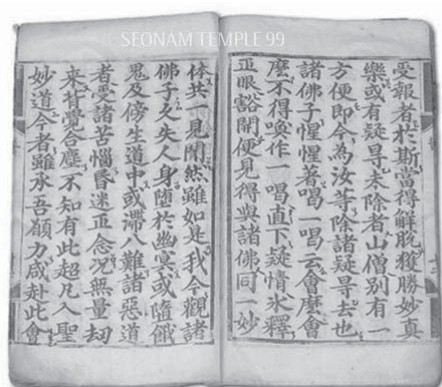 SEONAM TEMPLE 99
受報者於斯當得解脫獲勝妙真
樂或有疑㝵未除者山僧別有一
方便即今為汝等除諸疑㝵去也
諸佛子惺惺著喝一喝云會麽會
麽不得喚作一喝直下疑情氷釋
正眼豁開便見得與諸佛同一妙
体共一見聞然雖如是我今觀諸
佛子久失人身隨於幽冥或隨餓
鬼及傍生道中或滯八難諸惡道
者受諸苦惱昏迷正念况無量刼
来背覺合塵不知有此超凡入聖
妙道今者雖承吾願力咸赴此會